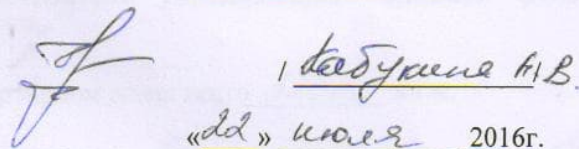 / Кабукина Н.В.
«22» июля 2016г.